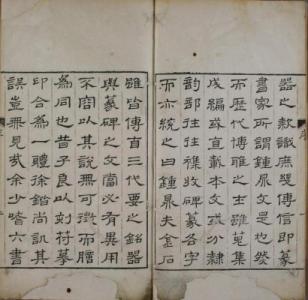 器之款識庶幾傳信即篆
書家所謂鍾鼎文是也然
而歷代博雅之士雖蒐集
成編或直載本文或分隸
韵部往往襍收碑篆各字
而亦統之曰鍾鼎夫金石
雖皆傳自三代要之銘器
與篆碑之文當必有異用
不容以其說無可徵而膡
為同也昔子良以刻符摹
印合為一體徐鍇尚譏其
誤豈無見哉余少嗜六書